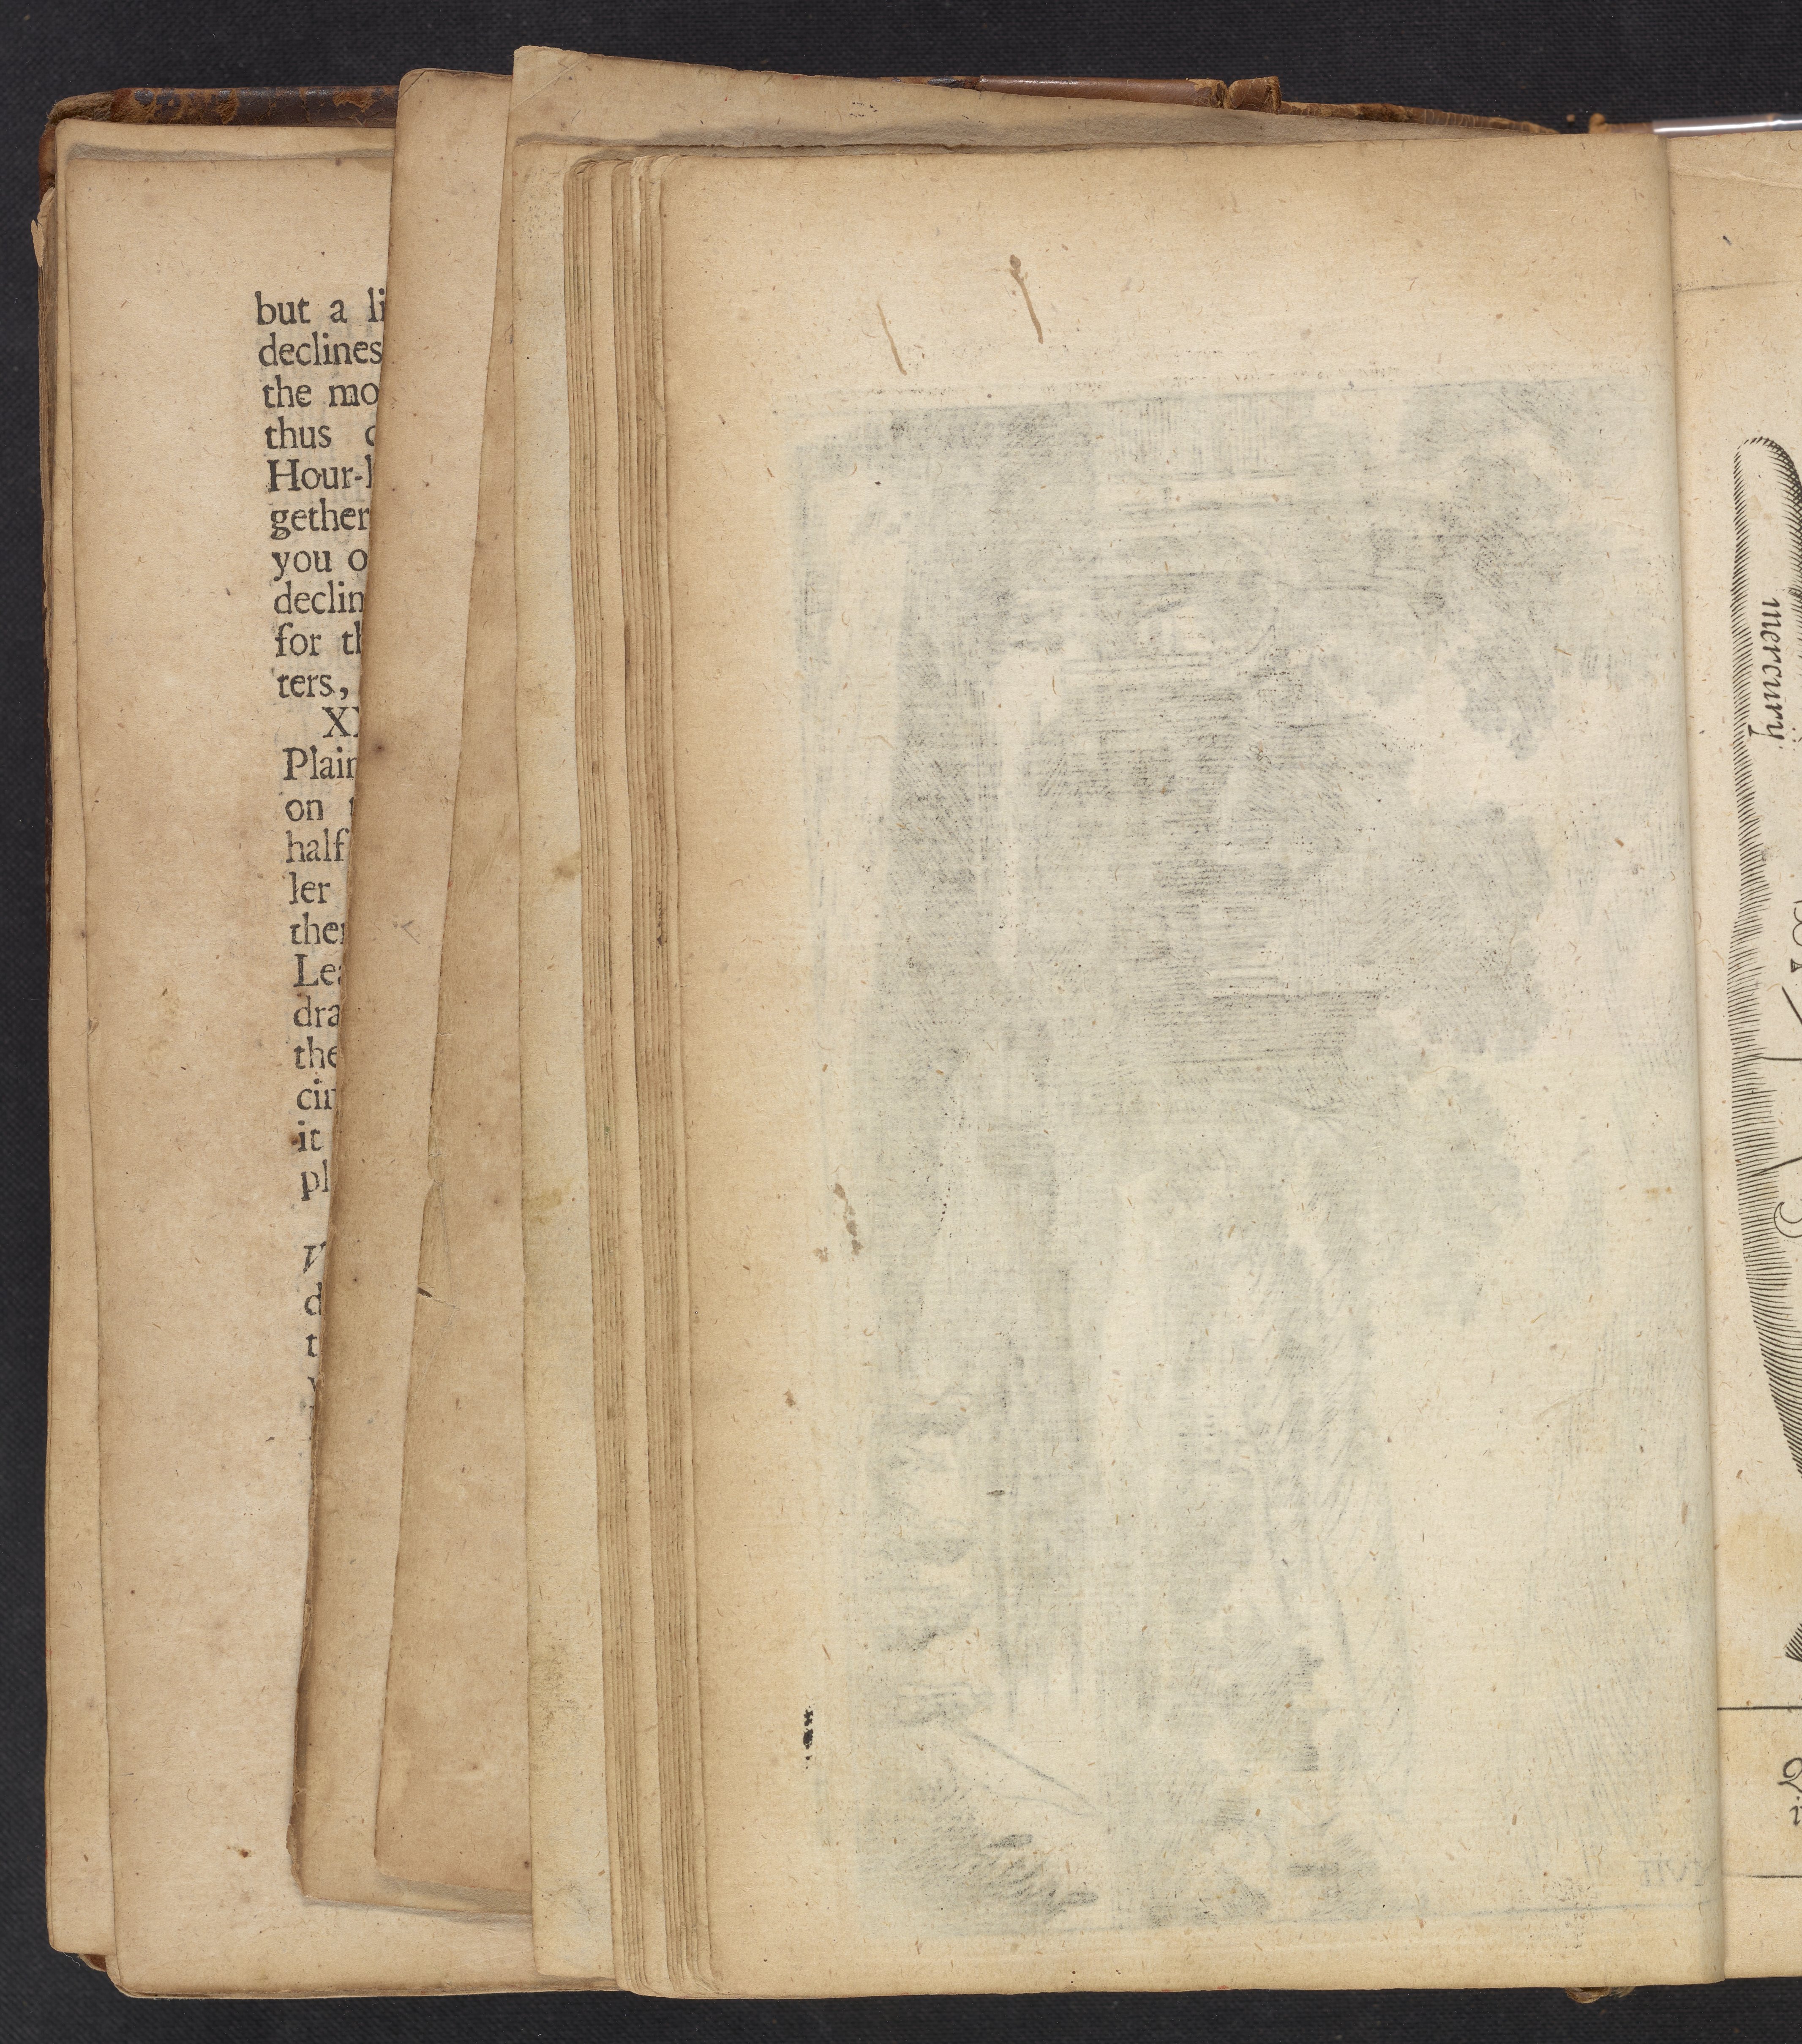 but a li
declines
the mo
thus
Hour-
gether
you o
declin
for th
ters,
XX
Plain
on
half
ler
ther
Lea
dra
the
cir
it
pl
V
d
t
mercurij